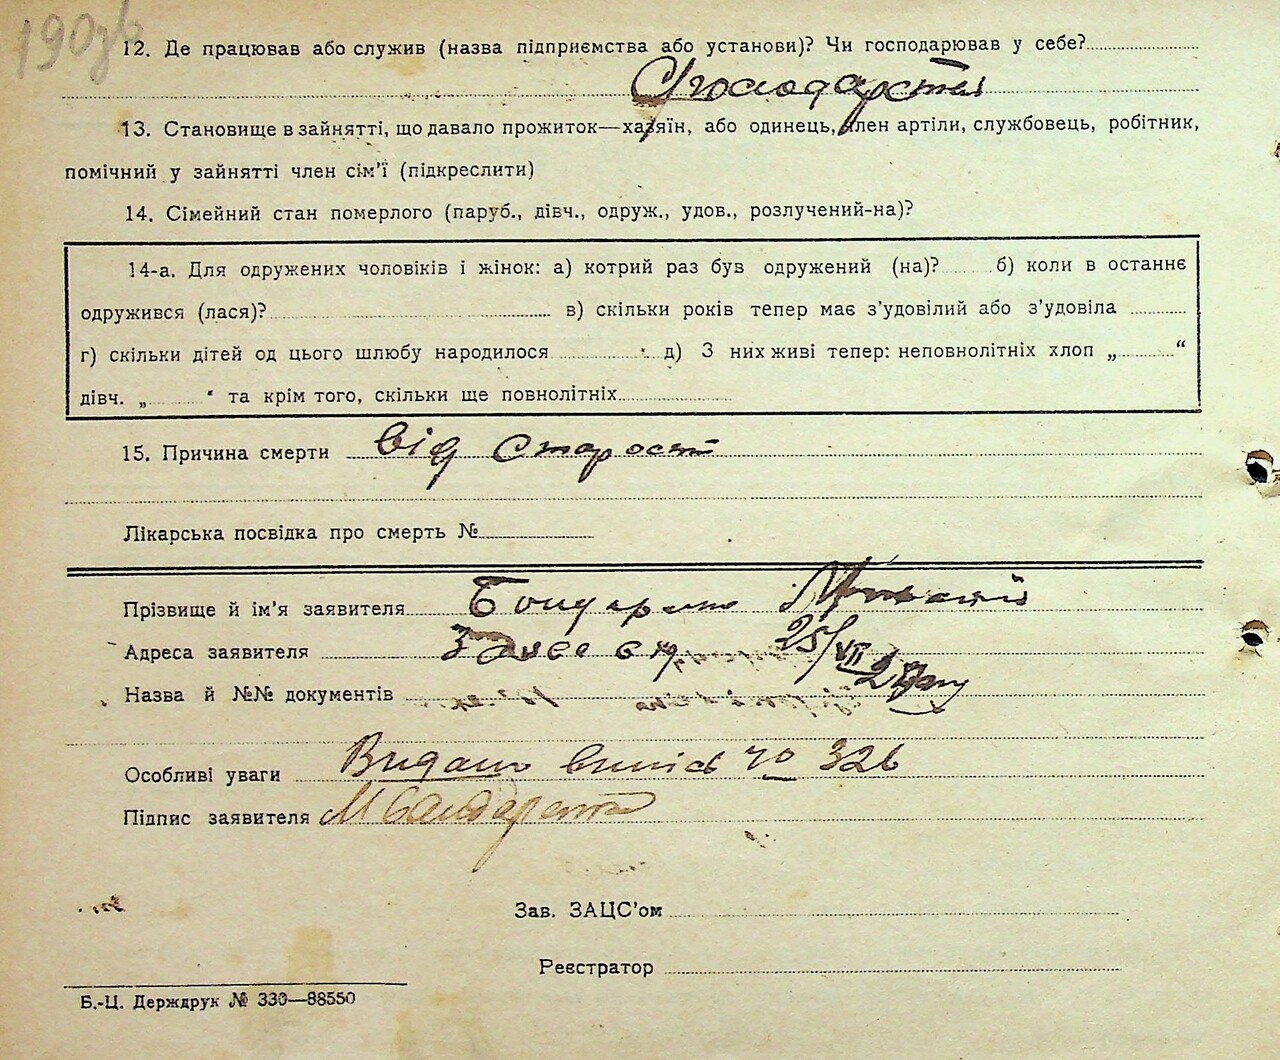 190зв
12. Де працював або служив (назва підприємства або установи)? Чи господарював у себе?
13. Становище в зайнятті, що давало прожиток—хазяїн, або одинець, член артіли, службовець, робітник,
помічний у зайнятті член сім'ї (підкреслити)
14. Сімейний стан померлого (паруб., дівч., одруж., удов., розлучений-на)?
14-а. Для одружених чоловіків і жінок: а) котрий раз був одружений (на)? б) коли в останнє
одружився (лася)? в) скільки років тепер має з'удовілий або з'удовіла
г) скільки дітей од цього шлюбу народилося д) З них живі тепер: неповнолітніх хлоп „ “
дівч. „ “ та крім того, скільки ще повнолітніх
15. Причина смерти від старост
Лікарська посвідка про смерть №
Прізвище й ім'я заявителя
Адреса заявителя 25/VII
Назва й №№ документів
Особливі уваги Видано випис № 326
Підпис заявителя
Зав. ЗАЦС'ом
Реєстратор
Б.-Ц. Держдрук № 330—88550